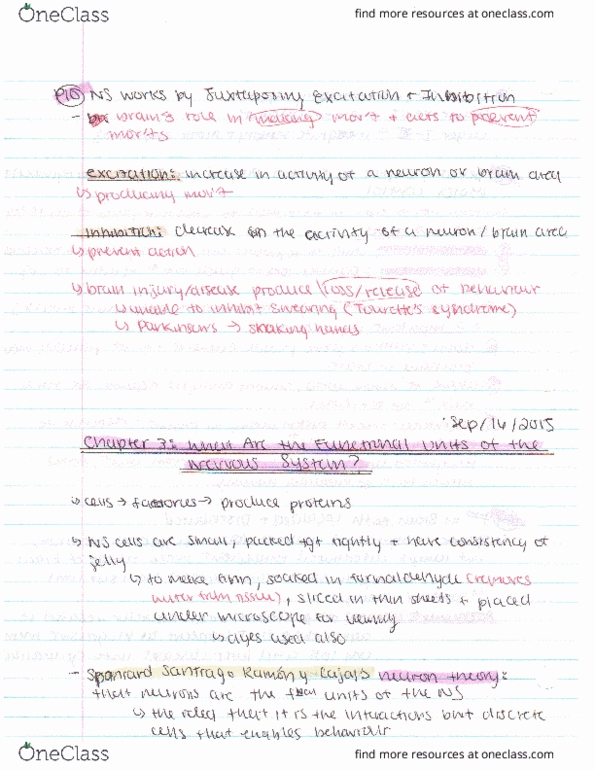 OneClass
find more resources at oneclass.com
P10 NS works by Juxtaposing Excitation + Inhibition
- brain's role in making mov't + acts to prevent
mov'ts
excitation: increase in activity of a neuron or brain area
↳ producing mov't
Inhibition: decrease in the activity of a neuron / brain area
↳ prevent action
↳ brain injury/disease produce loss/release of behaviour
↳ unable to inhibit swearing (Tourette's syndrome)
↳ Parkinson's → shaking hands
Sep/14/2015
Chapter 3: What Are the Functional Units of the
Nervous System?
↳ cells → factories → produce proteins
↳ NS cells are small, packed tgt tightly + have consistency of
jelly
↳ to make firm, soaked in formaldehyde (removes
water from tissue), sliced in thin sheets + placed
under microscope for viewing
↳ dyes used also
- Spaniard Santiago Ramón y Cajal's neuron theory:
that neurons are the units of the NS
↳ the idea that it is the interactions b/w discrete
cells that enables behaviour
OneClass
find more resources at oneclass.com